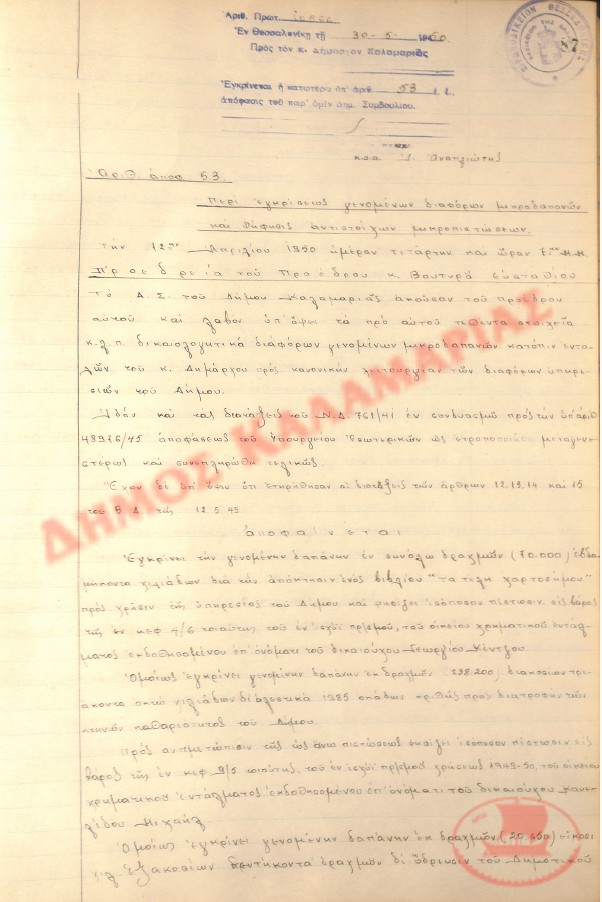 Ἀριθ. Πρωτ.
Ἐν Θεσσαλονίκῃ τῇ 30-5-1950
Πρὸς τὸν κ. Δήμαρχον Καλαμαριᾶς
87
Ἐγκρίνεται ἡ κατωτέρω ὑπ' ἀριθ. 53
ἀπόφασις τοῦ παρ' ὑμῖν Δημ. Συμβουλίου.
Ἀριθ. ἀποφ 53.
Περὶ ἐγκρίσεως γενομένων διαφόρων μικροδαπανῶν
καὶ ψήφισις ἀντιστοίχων μικροπιστώσεων.
Τὴν 12ην Ἀπριλίου 1950 ἡμέραν τετάρτην καὶ ὥραν 7ην μ.μ.
Προεδρεία τοῦ Προέδρου κ. Βουτυρᾶ Εὐσταθίου
Τὸ Δ.Σ. τοῦ Δήμου Καλαμαριᾶς ἀκοῦσαν τοῦ προέδρου
αὐτοῦ καὶ λαβὸν ὑπ' ὄψει τὰ πρὸ αὐτοῦ τεθέντα στοιχεῖα
κ.λ.π. δικαιολογητικὰ διαφόρων γενομένων μικροδαπανῶν κατόπιν ἐντο-
λῶν τοῦ κ. Δημάρχου πρὸς κανονικὴν λειτουργίαν τῶν διαφόρων ὑπηρε-
σιῶν τοῦ Δήμου.
Ἰδὸν καὶ τὰς διατάξεις τοῦ Ν.Δ. 761/41 ἐν συνδυασμῷ πρὸς τὴν ὑπ' ἀριθ
48976/45 ἀποφάσεως τοῦ Ὑπουργείου Ἐσωτερικῶν ὡς ἐτροποποιήθη μεταγενε-
στέρως καὶ συνεπληρώθη τελικῶς.
Ἔχον δὲ ὑπ' ὄψιν ὅτι ἐτηρήθησαν αἱ διατάξεις τῶν ἄρθρων 12.13.14 καὶ 15
τοῦ Β.Δ. τῆς 12.5.45
ἀποφαίνεται
Ἐγκρίνει τὴν γενομένην δαπάνην ἐν συνόλῳ δραχμῶν (70.000) ἑβδο-
μήκοντα χιλιάδων διὰ τὴν ἀπόκτησιν ἑνὸς βιβλίου "τὰ τέλη χαρτοσήμου"
πρὸς χρῆσιν τῆς ὑπηρεσίας τοῦ Δήμου καὶ ψηφίζει ἰσόποσον πίστωσιν εἰς βάρος
τῆς ἐν κεφ 4/6 τοιαύτης τοῦ ἐν ἰσχύϊ πρ)σμοῦ, τοῦ οἰκείου χρηματικοῦ ἐντάλ-
ματος ἐκδοθησομένου ἐπ' ὀνόματι τοῦ δικαιούχου Γεωργίου
Ὁμοίως ἐγκρίνει γενομένην δαπάνην ἐκ δραχμῶν 238.200, διακοσίων τρι-
άκοντα ὀκτὼ χιλιάδων δι' ἀλεστικὰ 1985 ὀκάδων κριθῆς πρὸς διατροφὴν τῶν
κτηνῶν καθαριότητος τοῦ Δήμου.
Πρὸς ἀντιμετώπισιν τῆς ὡς ἄνω πιστώσεως ψηφίζει ἰσόποσον πίστωσιν εἰς
βάρος τῆς ἐν κεφ 9/5 τοιαύτης, τοῦ ἐν ἰσχύϊ πρ)σμοῦ χρήσεως 1949-50, τοῦ οἰκείου
χρηματικοῦ ἐντάλματος ἐκδοθησομένου ἐπ' ὀνόματι τοῦ δικαιούχου Κανε-
λίδου Μιχαήλ
Ὁμοίως ἐγκρίνει γενομένην δαπάνην ἐκ δραχμῶν εἴκοσι
χιλ. ἑξακοσίων πεντήκοντα δραχμῶν δι' ὕδρευσιν τοῦ Δημοτικοῦ
ΔΗΜΟΣ ΚΑΛΑΜΑΡΙΑΣ